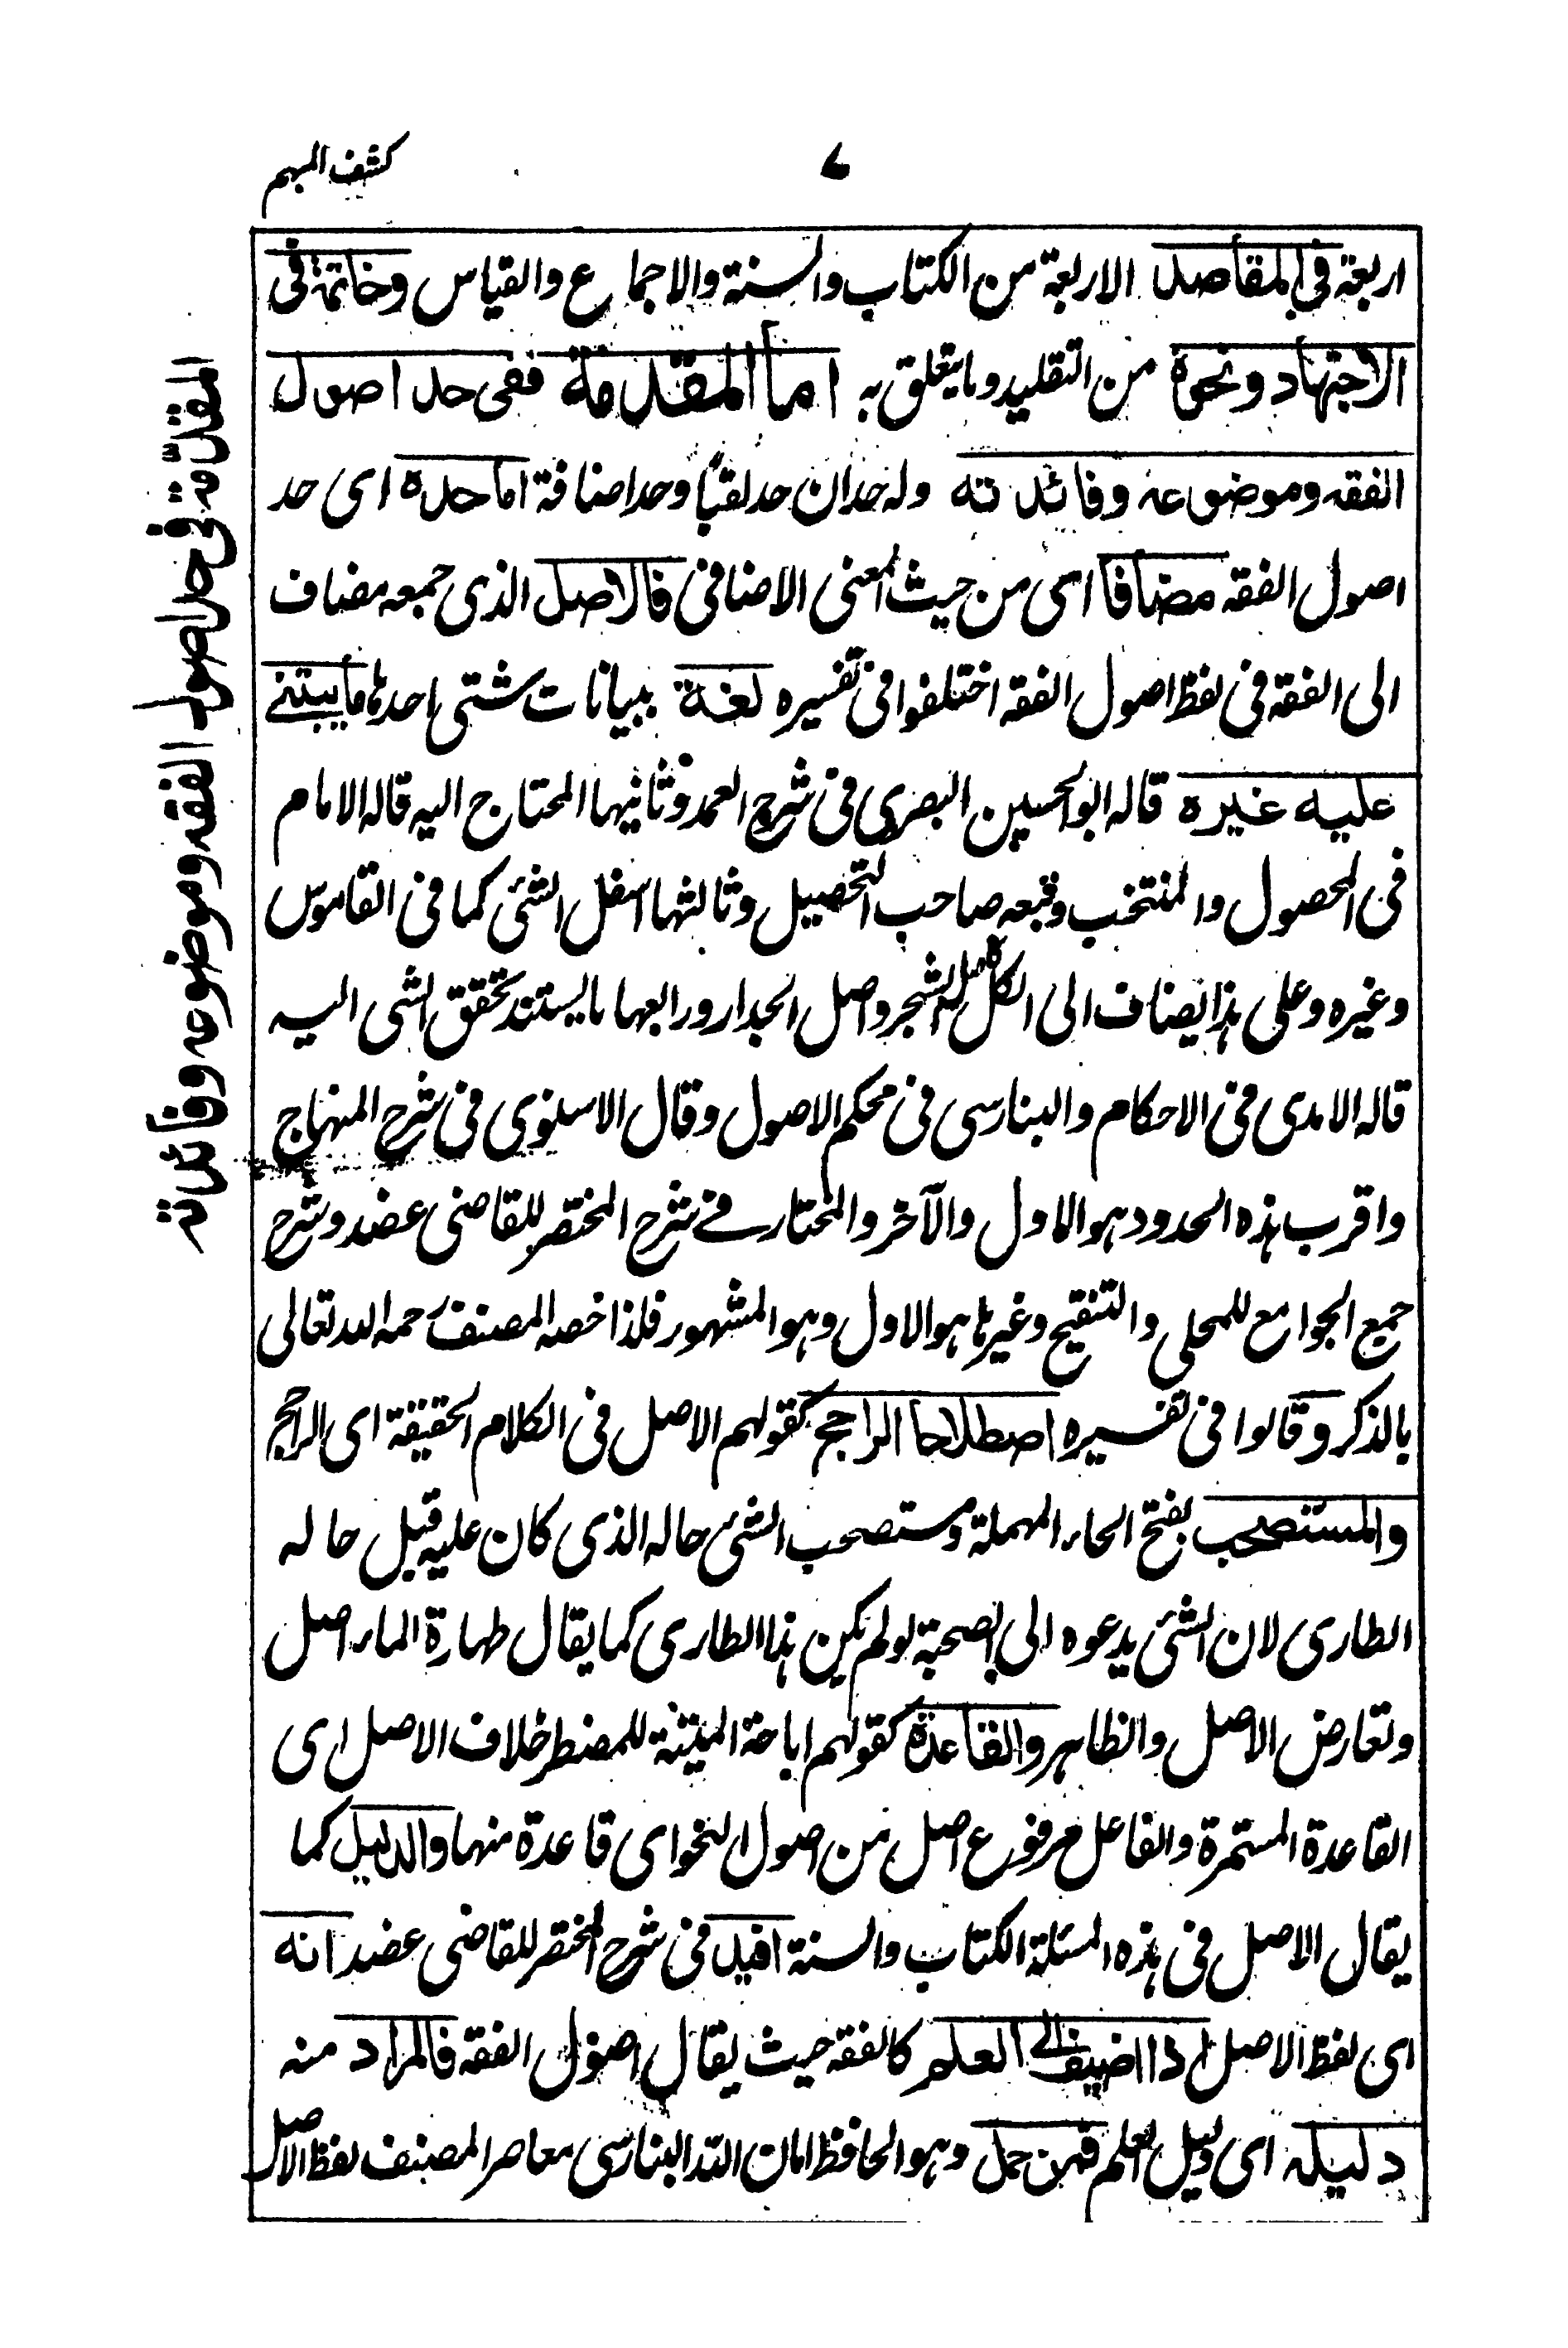 كشف المبهم
٧
اربعة في المقاصد الاربعة من الكتاب والسنة والاجماع والقياس وخاتمة في
الاجتهاد ونحوه من التقليد وما يتعلق به اما المقدمة ففى حد اصول
الفقه وموضوعه وفائدته وله حدان حد لقبا وحد اضافة اما حده اى حد
اصول الفقه مضافا اى من حيث المعنى الاضافى فالاصل الذى جمعه مضاف
الى الفقه فى لفظ اصول الفقه اختلفوا فى تفسيره لغة ببيانات شتى احدها ما يبتنے
عليه غيره قاله ابو الحسين البصرى فى شرح العمد وثانيها المحتاج اليه قاله الامام
فى المحصول والمنتخب وتبعه صاحب التحصيل وثالثها اسفل الشئ كما فى القاموس
وغيره وعلى هذا يضاف الى الكل كاصل الشجر واصل الجدار ورابعها ما يستند تحقق الشى اليه
قاله الامدى فى الاحكام والبنارسى فى محكم الاصول وقال الاسنوى فى شرح المنهاج
واقرب هذه الحدود هو الاول والآخر والمختار فے شرح المختصر للقاضى عضد وشرح
جمع الجوامع للمحلى والتنقيح وغيرها هو الاول وهو المشهور فلذا خصه المصنف رحمه الله تعالى
بالذكر وقالوا فى تفسيره اصطلاحا الراجح كقولهم الاصل فى الكلام الحقيقة اى الراجح
والمستصحب بفتح الحاء المهملة ومستصحب الشئ حاله الذى كان عليه قبل حاله
الطارى لان الشئ يدعوه الى الصحبة لو لم يكن هذا الطارى كما يقال طهارة الماء اصل
وتعارض الاصل والظاهر والقاعدة كقولهم اباحة الميتة للمضطر خلاف الاصل اى
القاعدة المستمرة والفاعل مرفوع اصل من اصول النحو اى قاعدة منها والدليل كما
يقال الاصل فى هذه المسئلة الكتاب والسنة افيد فى شرح المختصر للقاضى عضد انه
اى لفظ الاصل اذا اضيف الى العلم كالفقه حيث يقال اصول الفقه فالمراد منه
دليله اى دليل العلم فمن حمل وهو الحافظ امان الله البنارسى معاصر المصنف لفظ الاصل
المقدمة فى حد اصول الفقه وموضوعه وفائدته